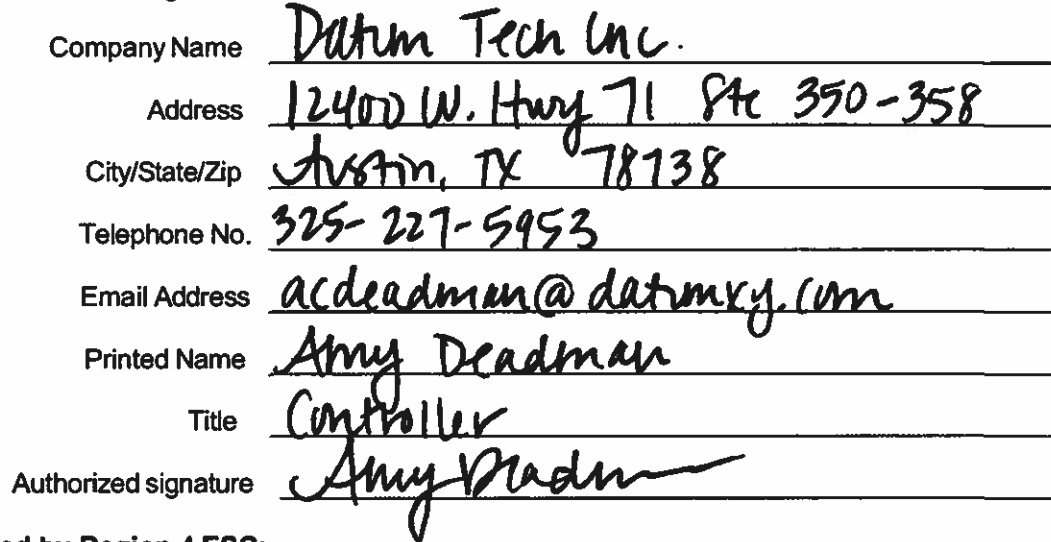 Company Name Datum Tech Inc.
Address 12400 W. Hwy 71 Ste 350-358
City/State/Zip Austin, TX 78738
Telephone No. 325-227-5953
Email Address acdeadman@datumry.com
Printed Name Amy Deadman
Title Controller
Authorized signature Amy Deadm
by Region 4 ESC: